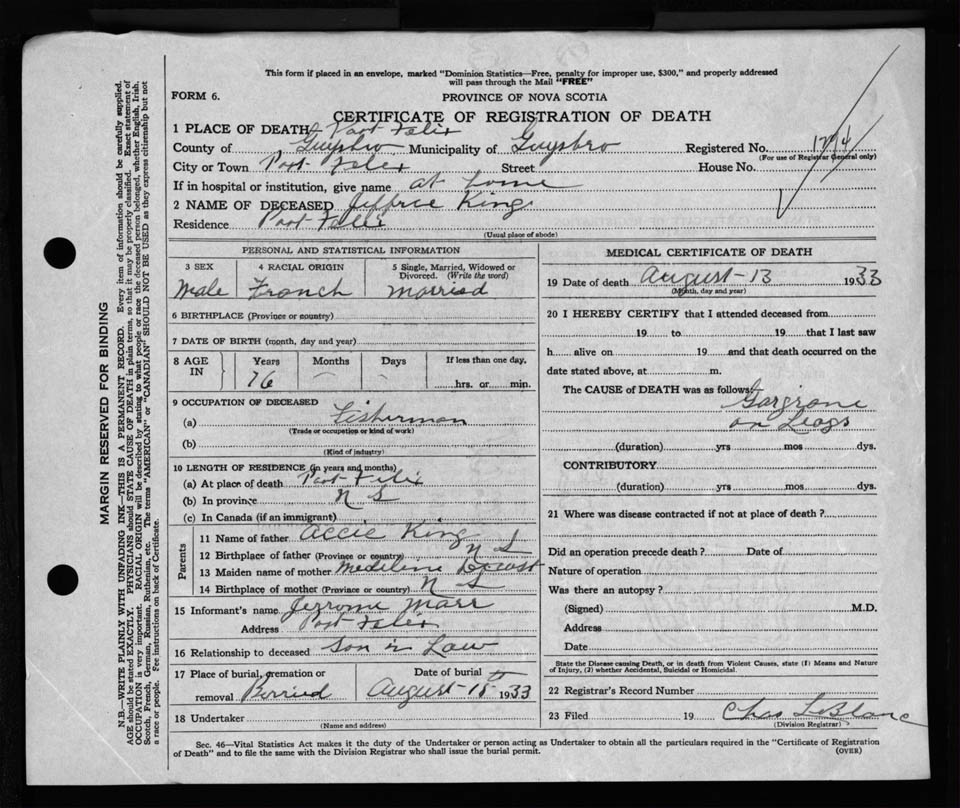 This form if placed in an envelope, marked "Dominion Statistics—Free, penalty for improper use, $300," and properly addressed
will pass through the Mail "FREE"
FORM 6.
PROVINCE OF NOVA SCOTIA
CERTIFICATE OF REGISTRATION OF DEATH
1 PLACE OF DEATH Port Felix
County of Guysbro Municipality of Guysbro Registered No.
(For use of Registrar General only)
City or Town Port Felix Street House No.
If in hospital or institution, give name at home
2 NAME OF DECEASED Jeffrie King
Residence Port Felix
(Usual place of abode)
PERSONAL AND STATISTICAL INFORMATION
3 SEX 4 RACIAL ORIGIN 5 Single, Married, Widowed or
Divorced. (Write the word)
Male French Married
6 BIRTHPLACE (Province or country)
7 DATE OF BIRTH (month, day and year)
8 AGE IN Years Months Days If less than one day,
76 — — hrs. or min.
9 OCCUPATION OF DECEASED
(a) Fisherman
(Trade or occupation or kind of work)
(b)
(Kind of industry)
10 LENGTH OF RESIDENCE (in years and months)
(a) At place of death Port Felix
(b) In province N S
(c) In Canada (if an immigrant)
Parents
11 Name of father Accie King
12 Birthplace of father (Province or country) N S
13 Maiden name of mother Madeline
14 Birthplace of mother (Province or country) N S
15 Informant's name Jerrome Marr
Address Port Felix
16 Relationship to deceased Son in Law
17 Place of burial, cremation or Date of burial
removal Berried August-15th 1933
18 Undertaker
(Name and address)
MEDICAL CERTIFICATE OF DEATH
19 Date of death August-13 1933
(Month, day and year)
20 I HEREBY CERTIFY that I attended deceased from
19 to 19 that I last saw
h alive on 19 and that death occurred on the
date stated above, at m.
The CAUSE of DEATH was as follows: Gargrone
on Leags
(duration) yrs mos dys.
CONTRIBUTORY
(duration) yrs mos dys.
21 Where was disease contracted if not at place of death?
Did an operation precede death? Date of
Nature of operation
Was there an autopsy?
(Signed) M.D.
Address
Date
State the Disease causing Death, or in death from Violent Causes, state (1) Means and Nature
of Injury, (2) whether Accidental, Suicidal or Homicidal.
22 Registrar's Record Number
23 Filed 19 Chas LeBlanc
(Division Registrar)
Sec. 46—Vital Statistics Act makes it the duty of the Undertaker or person acting as Undertaker to obtain all the particulars required in the "Certificate of Registration
of Death" and to file the same with the Division Registrar who shall issue the burial permit. (OVER)
MARGIN RESERVED FOR BINDING
N.B.—WRITE PLAINLY WITH UNFADING INK—THIS IS A PERMANENT RECORD. Every item of information should be carefully supplied.
AGE should be stated EXACTLY. PHYSICIANS should STATE CAUSE OF DEATH in plain terms, so that it may be properly classified. Exact statement of
OCCUPATION is very important. RACIAL ORIGIN will be described by stating to what people or race the deceased person belonged, whether English, Irish,
Scotch, French, German, Russian, Ruthenian, etc. The terms "AMERICAN" or "CANADIAN" SHOULD NOT BE USED as they express citizenship but not
a race or people. Fee instructions on back of Certificate.